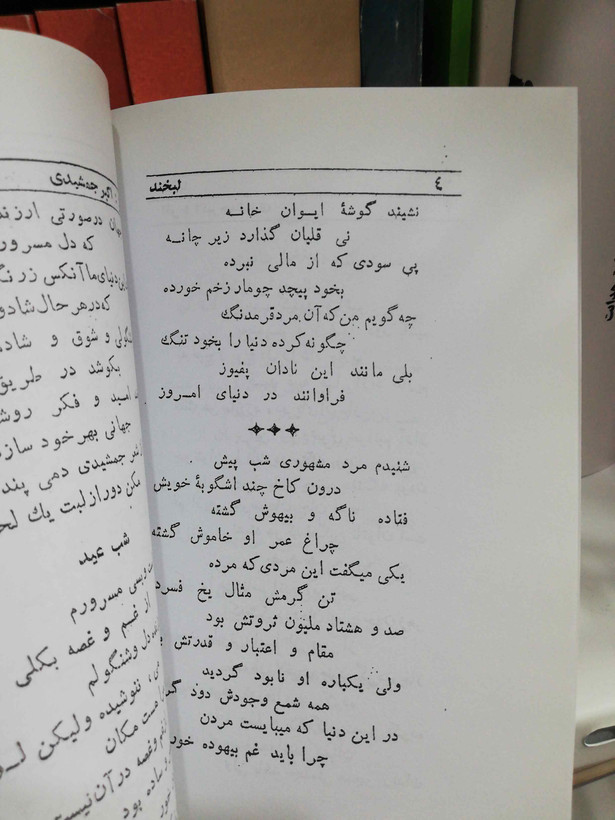 ٤ لبخند
نشیند گوشهٔ ایـوان خانـه
نی قلیان گذارد زیر چانـه
پی سودی که از مالی نبرده
بخود پیچد چومار زخم خورده
چه گویم من که آن مرد قرمدنگ
چگونه کرده دنیا را بخود تنگ
بلی مانند این نادان پفیوز
فراوانند در دنیای امـروز
شنیدم مرد مشهوری شب پیش
درون کاخ چند اشگوبهٔ خویش
فتاده ناگه و بیهوش گشته
چراغ عمر او خاموش گشته
یکی میگفت این مردی که مرده
تن گرمش مثال یخ فسرد
صد و هشتاد ملیون ثروتش بود
مقام و اعتبار و قدرتش
ولی یکباره او نابود گردید
همه شمع وجودش دود
در این دنیا که میبایست مردن
چرا باید غم بیهوده
اکبر جمشیدی
در صورتی
که دل مسرور
دنیای ما آنکس
که در هر حال شاد
و شوق و
بکوشد در طریق
و فکر
جهانی بهر خود
جمشیدی دمی
مکن دور از لبت یك
شب عید
مسرورم
از غم و غصه بکلی
و شنگولم
ننوشیده ولیکن
است مکان
وغصه در آن نیست
ساده بود